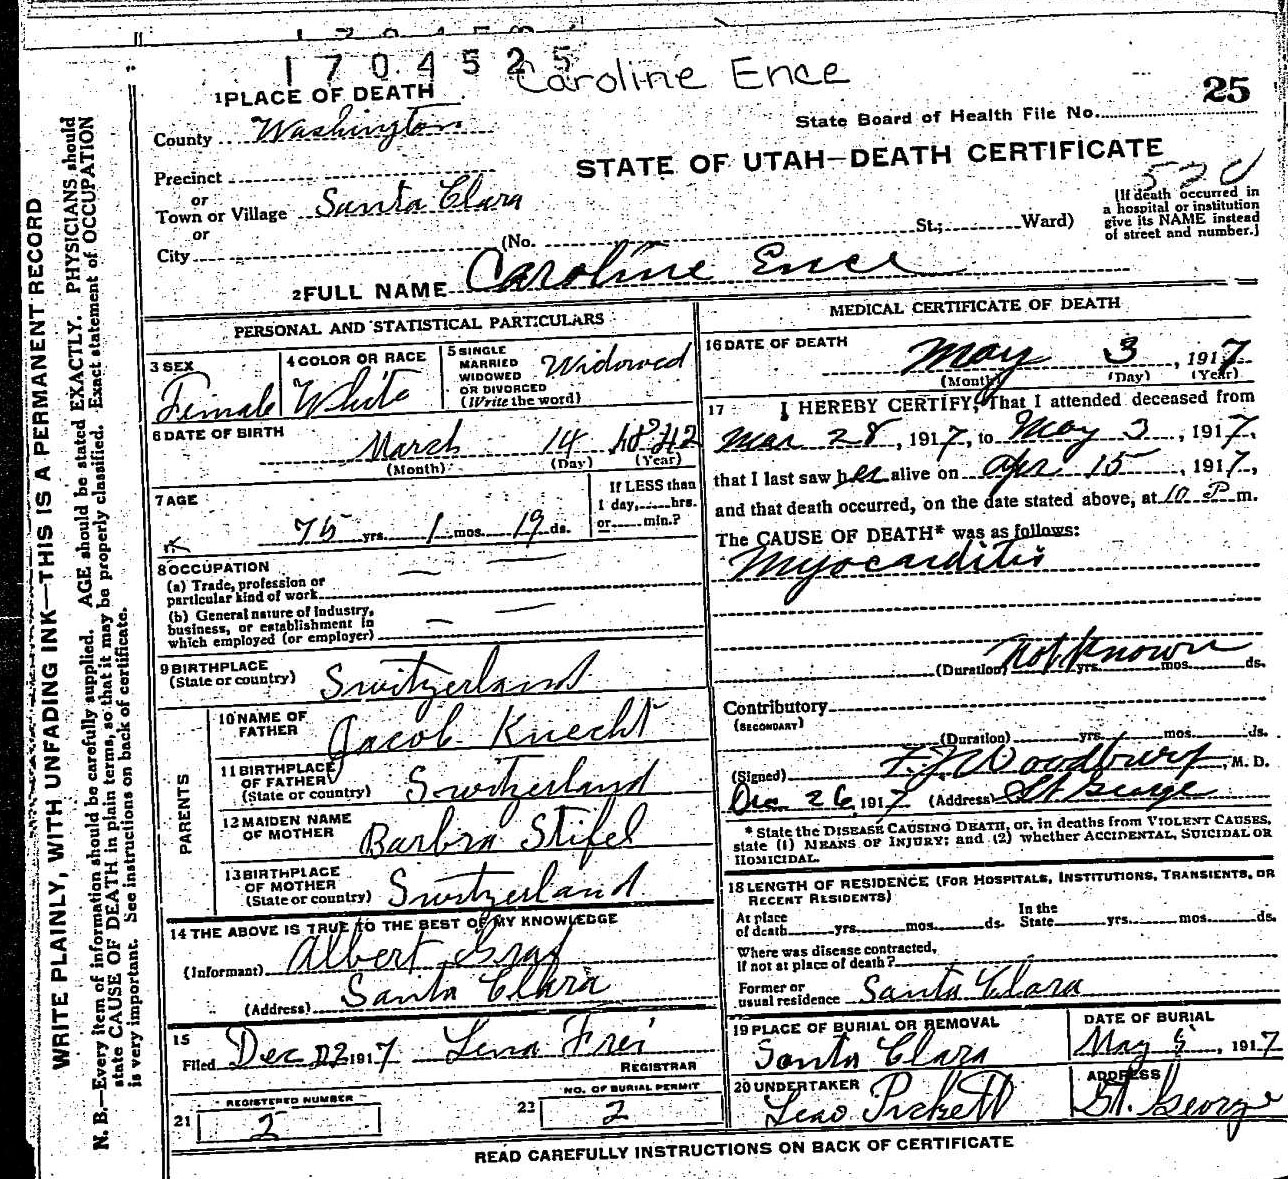 1704525
Caroline Ence
25
1 PLACE OF DEATH
State Board of Health File No.
County Washington
STATE OF UTAH—DEATH CERTIFICATE
Precinct
or
Town or Village Santa Clara
or
City (No. St.; Ward)
[If death occurred in
a hospital or institution
give its NAME instead
of street and number.]
2 FULL NAME Caroline Ence
PERSONAL AND STATISTICAL PARTICULARS
3 SEX
Female
4 COLOR OR RACE
White
5 SINGLE
MARRIED
WIDOWED
OR DIVORCED
(Write the word)
Widowed
6 DATE OF BIRTH
March 14 1842
(Month) (Day) (Year)
7 AGE
75 yrs. 1 mos. 19 ds.
If LESS than
1 day, hrs.
or min.?
8 OCCUPATION
(a) Trade, profession or
particular kind of work
(b) General nature of industry,
business, or establishment in
which employed (or employer)
9 BIRTHPLACE
(State or country) Switzerland
PARENTS
10 NAME OF
FATHER Jacob Knecht
11 BIRTHPLACE
OF FATHER
(State or country) Switzerland
12 MAIDEN NAME
OF MOTHER Barbra Stifel
13 BIRTHPLACE
OF MOTHER
(State or country) Switzerland
14 THE ABOVE IS TRUE TO THE BEST OF MY KNOWLEDGE
(Informant) Albert Graf
(Address) Santa Clara
15
Filed Dec 1917 Lena Frei
REGISTRAR
REGISTERED NUMBER
21 2
NO. OF BURIAL PERMIT
22 2
MEDICAL CERTIFICATE OF DEATH
16 DATE OF DEATH
May 3, 1917
(Month) (Day) (Year)
17 I HEREBY CERTIFY, That I attended deceased from
Mar 28, 1917, to May 3, 1917,
that I last saw her alive on Apr 15, 1917,
and that death occurred, on the date stated above, at 10 P m.
The CAUSE OF DEATH* was as follows:
Myocarditis
(Duration) Not Known yrs. mos. ds.
Contributory
(SECONDARY)
(Duration) yrs. mos. ds.
(Signed) F. J. Woodbury, M. D.
Dec 26, 1917 (Address) St George
* State the DISEASE CAUSING DEATH, or, in deaths from VIOLENT CAUSES,
state (1) MEANS OF INJURY; and (2) whether ACCIDENTAL, SUICIDAL OR
HOMICIDAL.
18 LENGTH OF RESIDENCE (FOR HOSPITALS, INSTITUTIONS, TRANSIENTS, OR
RECENT RESIDENTS)
At place
of death yrs. mos. ds.
In the
State yrs. mos. ds.
Where was disease contracted,
if not at place of death?
Former or
usual residence Santa Clara
19 PLACE OF BURIAL OR REMOVAL
Santa Clara
DATE OF BURIAL
May 5, 1917
20 UNDERTAKER
Leao Pickett
ADDRESS
St. George
READ CAREFULLY INSTRUCTIONS ON BACK OF CERTIFICATE
WRITE PLAINLY, WITH UNFADING INK—THIS IS A PERMANENT RECORD
N. B.—Every item of information should be carefully supplied. AGE should be stated EXACTLY. PHYSICIANS should
state CAUSE OF DEATH in plain terms, so that it may be properly classified. Exact statement of OCCUPATION
is very important. See instructions on back of certificate.